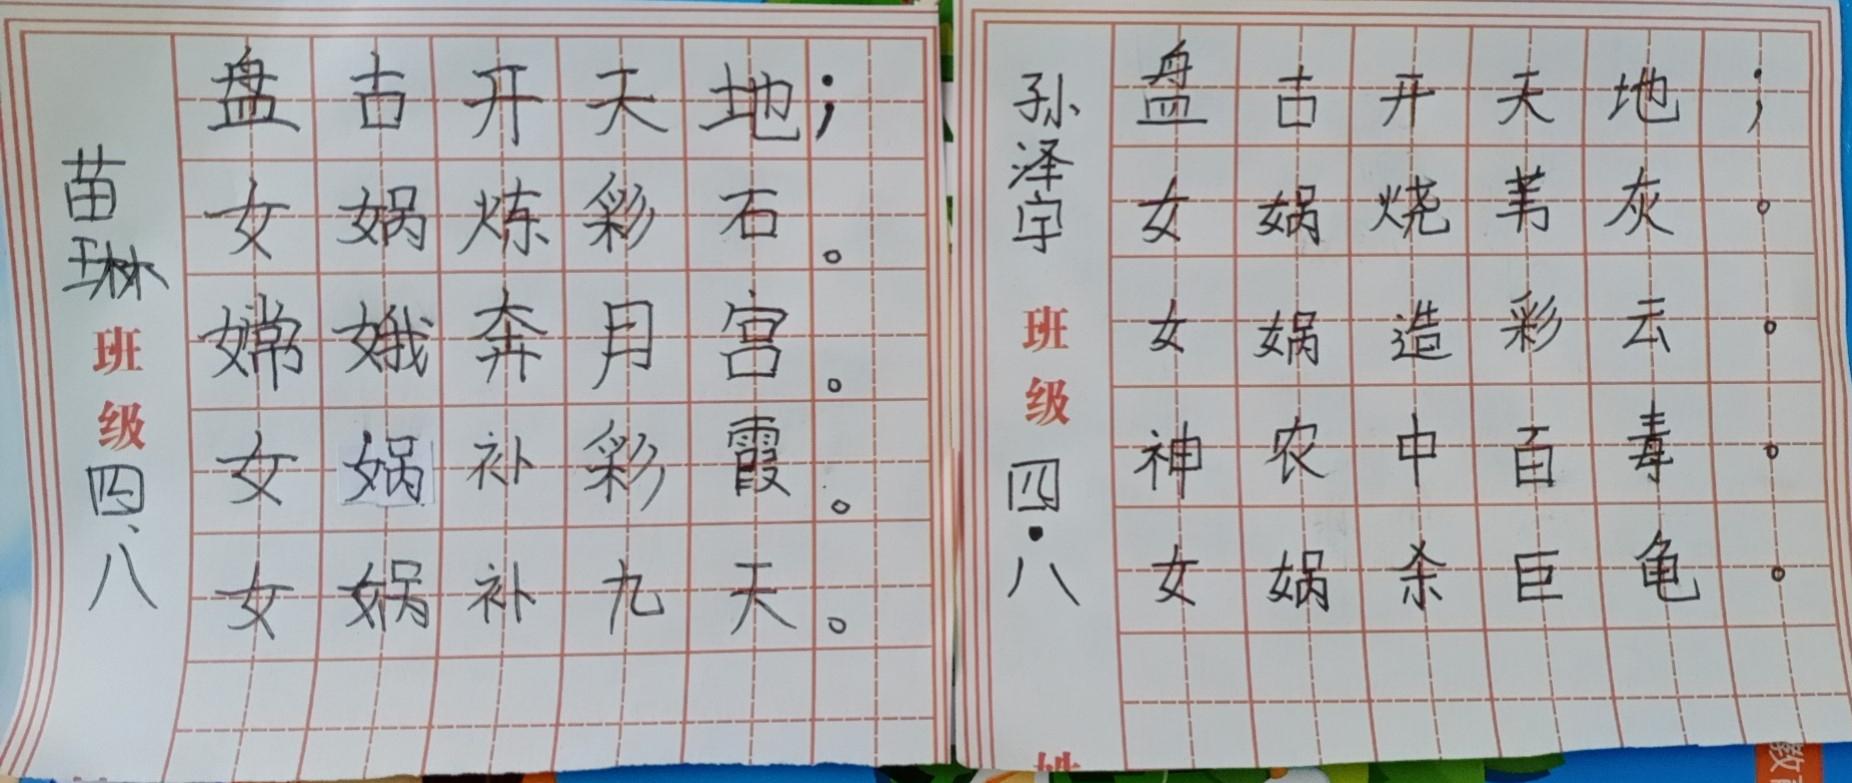 苗琳
班级
四、八
盘古开天地；
女娲炼彩石。
嫦娥奔月宫。
女娲补彩霞。
女娲补九天。
孙泽宇
班级
四·八
盘古开天地；
女娲烧苇灰。
女娲造彩云。
神农中百毒。
女娲杀巨龟。